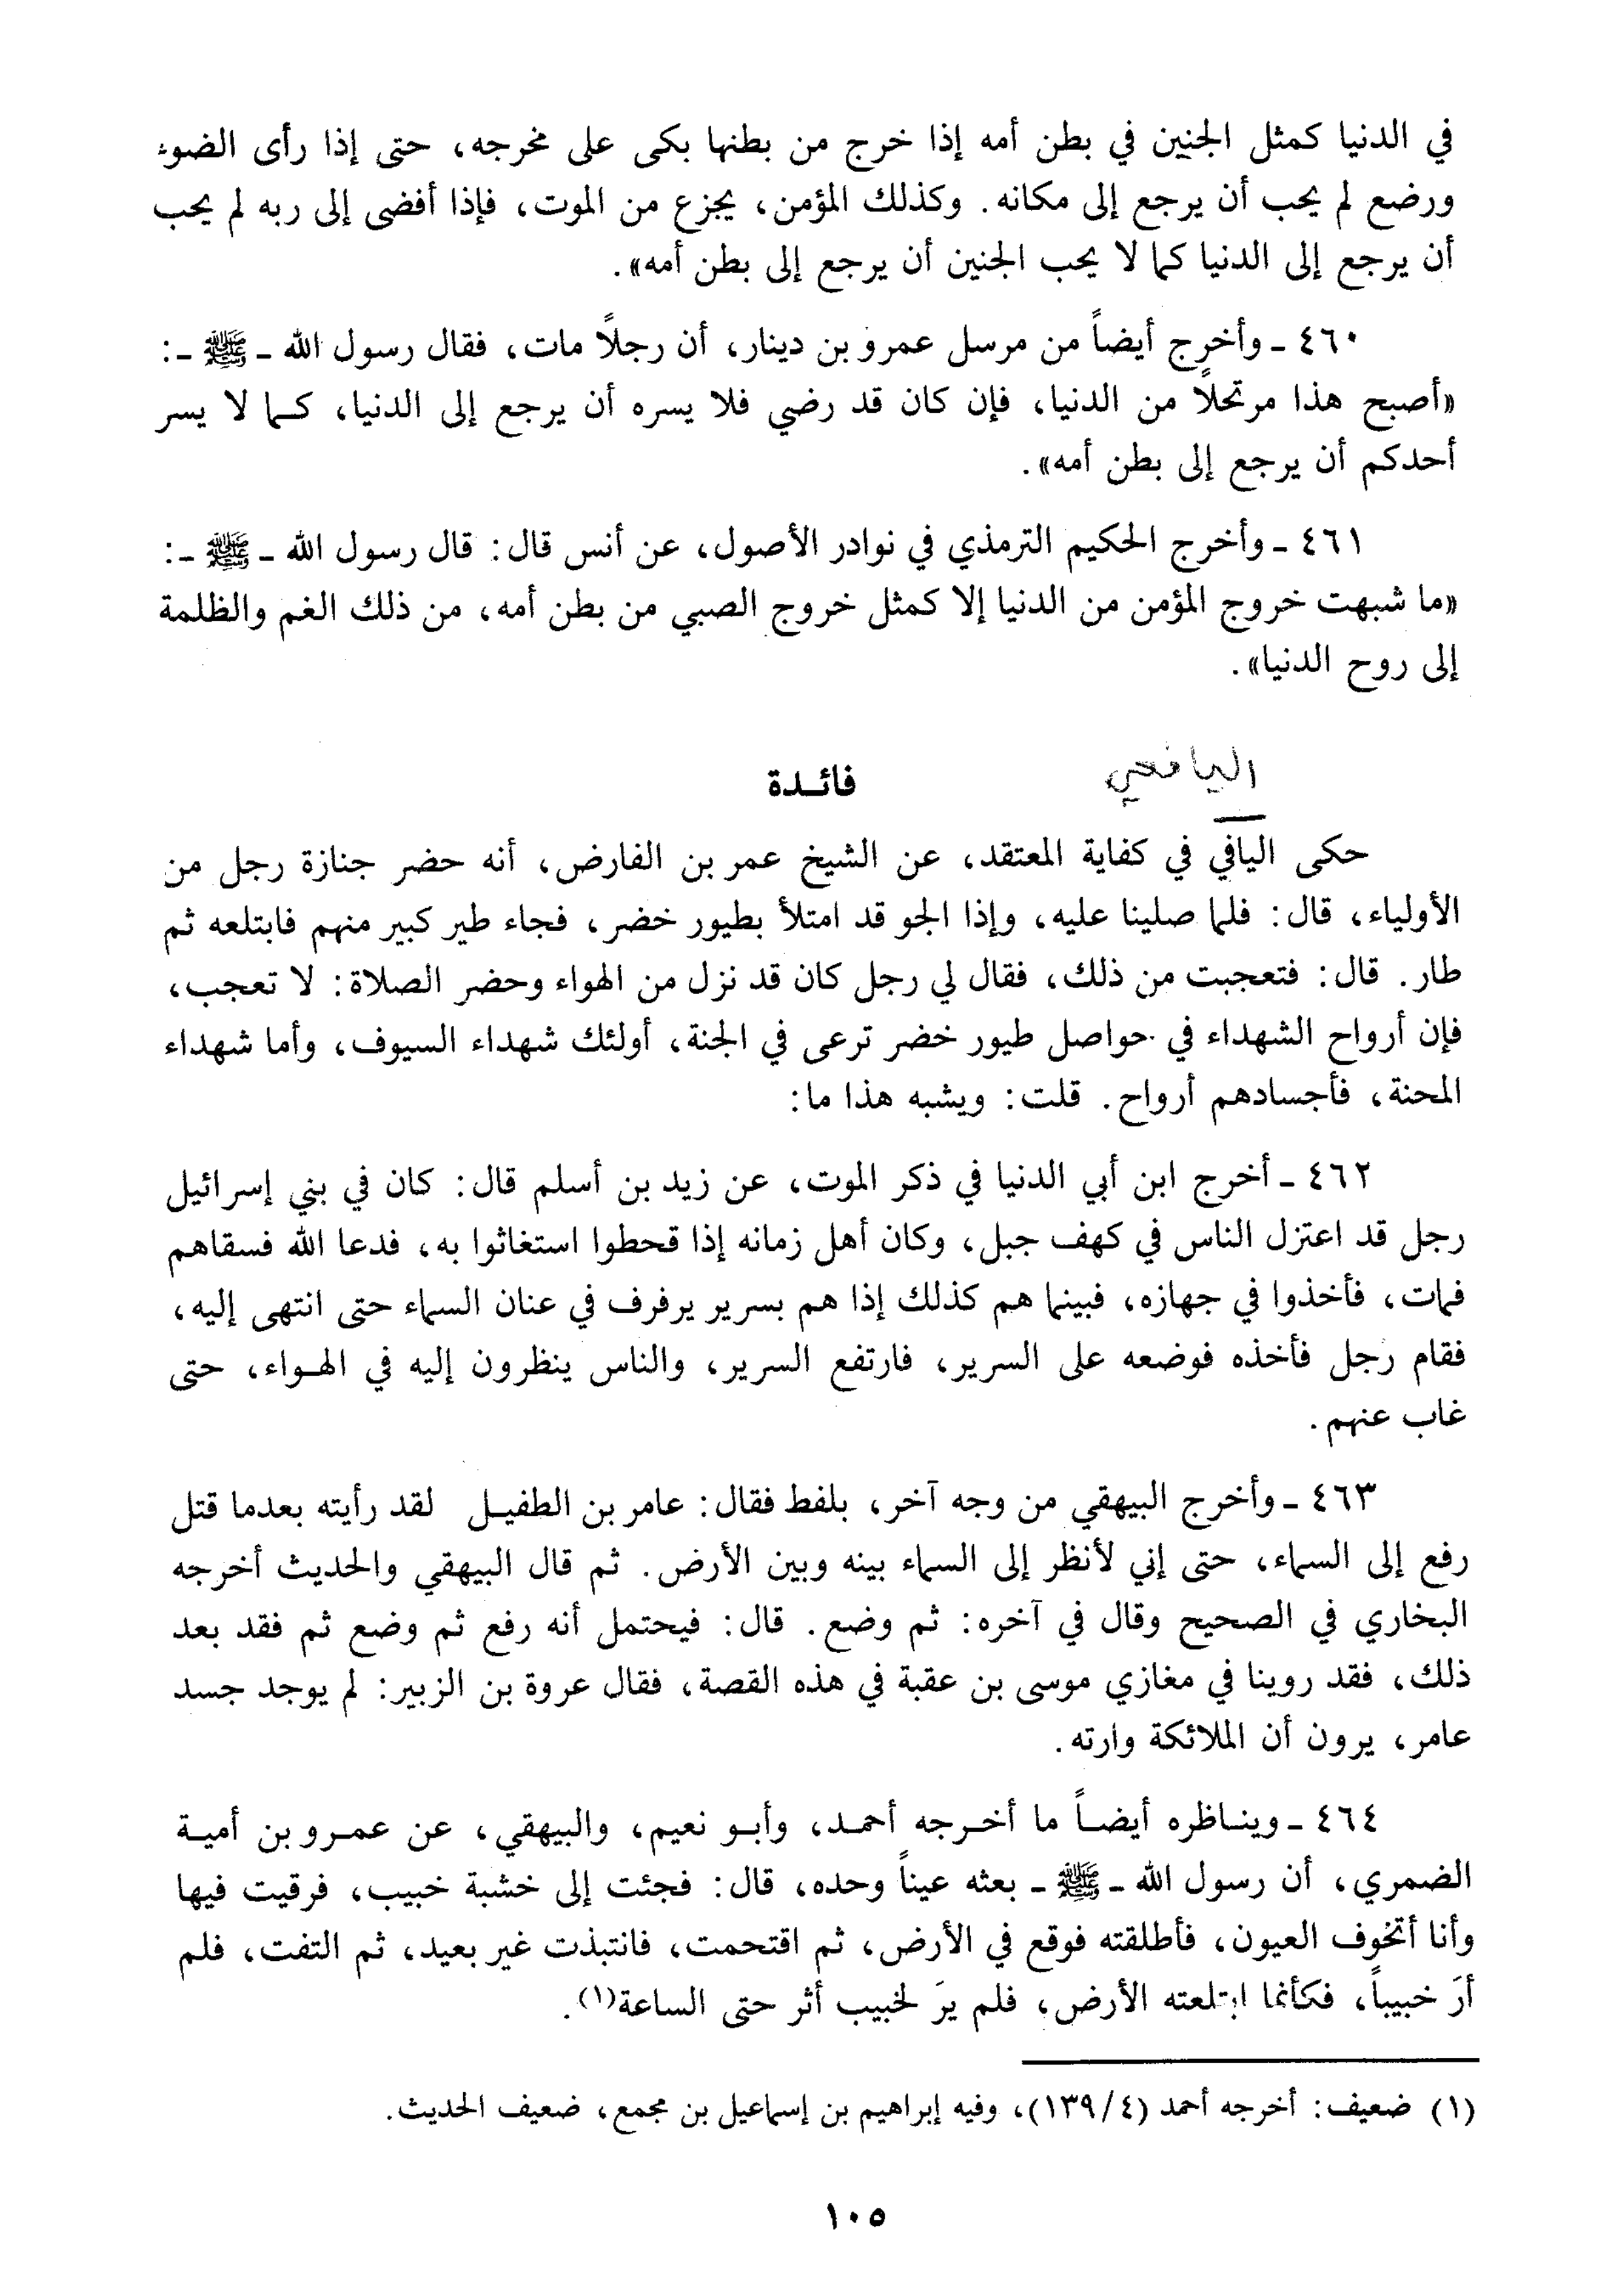 في الدنيا كمثل الجنين في بطن أمه إذا خرج من بطنها بكى على مخرجه، حتى إذا رأى الضوء
ورضع لم يحب أن يرجع إلى مكانه. وكذلك المؤمن، يجزع من الموت، فإذا أفضى إلى ربه لم يحب
أن يرجع إلى الدنيا كما لا يحب الجنين أن يرجع إلى بطن أمه».
٤٦٠ ـ وأخرج أيضاً من مرسل عمرو بن دينار، أن رجلاً مات، فقال رسول الله ـ ﷺ ـ:
«أصبح هذا مرتحلاً من الدنيا، فإن كان قد رضي فلا يسره أن يرجع إلى الدنيا، كما لا يسر
أحدكم أن يرجع إلى بطن أمه».
٤٦١ ـ وأخرج الحكيم الترمذي في نوادر الأصول، عن أنس قال: قال رسول الله ـ ﷺ ـ:
«ما شبهت خروج المؤمن من الدنيا إلا كمثل خروج الصبي من بطن أمه، من ذلك الغم والظلمة
إلى روح الدنيا».
اليافعي
فائدة
حكى اليافي في كفاية المعتقد، عن الشيخ عمر بن الفارض، أنه حضر جنازة رجل من
الأولياء، قال: فلما صلينا عليه، وإذا الجو قد امتلأ بطيور خضر، فجاء طير كبير منهم فابتلعه ثم
طار. قال: فتعجبت من ذلك، فقال لي رجل كان قد نزل من الهواء وحضر الصلاة: لا تعجب،
فإن أرواح الشهداء في حواصل طيور خضر ترعى في الجنة، أولئك شهداء السيوف، وأما شهداء
المحنة، فأجسادهم أرواح. قلت: ويشبه هذا ما:
٤٦٢ ـ أخرج ابن أبي الدنيا في ذكر الموت، عن زيد بن أسلم قال: كان في بني إسرائيل
رجل قد اعتزل الناس في كهف جبل، وكان أهل زمانه إذا قحطوا استغاثوا به، فدعا الله فسقاهم
فمات، فأخذوا في جهازه، فبينما هم كذلك إذا هم بسرير يرفرف في عنان السماء حتى انتهى إليه،
فقام رجل فأخذه فوضعه على السرير، فارتفع السرير، والناس ينظرون إليه في الهواء، حتى
غاب عنهم.
٤٦٣ ـ وأخرج البيهقي من وجه آخر، بلفط فقال: عامر بن الطفيل لقد رأيته بعدما قتل
رفع إلى السماء، حتى إني لأنظر إلى السماء بينه وبين الأرض. ثم قال البيهقي والحديث أخرجه
البخاري في الصحيح وقال في آخره: ثم وضع. قال: فيحتمل أنه رفع ثم وضع ثم فقد بعد
ذلك، فقد روينا في مغازي موسى بن عقبة في هذه القصة، فقال عروة بن الزبير: لم يوجد جسد
عامر، يرون أن الملائكة وارته.
٤٦٤ ـ ويناظره أيضاً ما أخرجه أحمد، وأبو نعيم، والبيهقي، عن عمرو بن أمية
الضمري، أن رسول الله ـ ﷺ ـ بعثه عيناً وحده، قال: فجئت إلى خشبة خبيب، فرقيت فيها
وأنا أتخوف العيون، فأطلقته فوقع في الأرض، ثم اقتحمت، فانتبذت غير بعيد، ثم التفت، فلم
أرَ خبيباً، فكأنما ابتلعته الأرض، فلم يرَ لخبيب أثر حتى الساعة(١).
(١) ضعيف: أخرجه أحمد (٤/١٣٩)، وفيه إبراهيم بن إسماعيل بن مجمع، ضعيف الحديث.
١٠٥